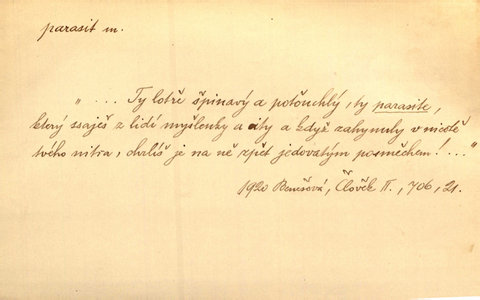 parasit m.
" ... Ty lotře špinavý a potouchlý, ty parasite,
který ssaješ z lidí myšlenky a city a když zahynuly v nicotě
tvého nitra, chrlíš je na ně zpět jedovatým posměchem! ... "
1920 Benešová, Člověk II., 706, 21.